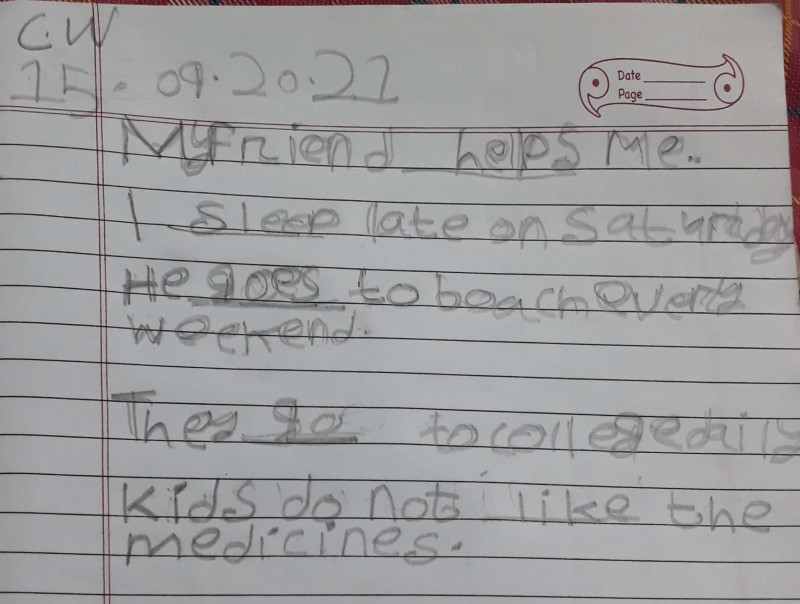 C.W
15.09.2021
Date
Page
My friend helps Me.
I sleep late on Saturday
He goes to beach every
weekend.
They go to college daily
Kids do not like the
medicines.